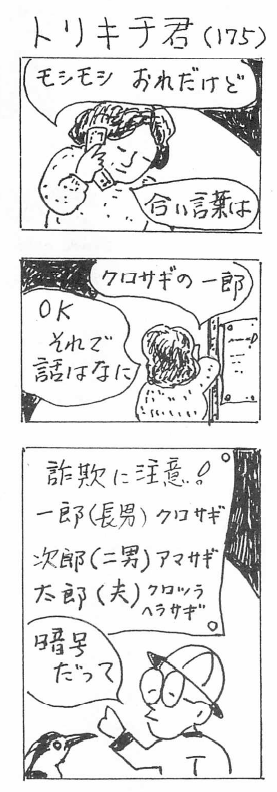 トリキチ君(175)
モシモシ おれだけど
合い言葉は
クロサギの一郎
OK
それで
話はなに
詐欺に注意!
一郎(長男) クロサギ
次郎(二男) アマサギ
太郎(夫) クロツラ
ヘラサギ
暗号
だって
T